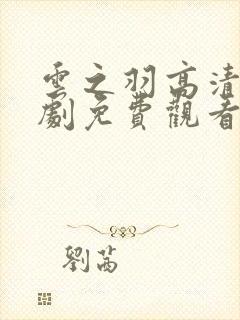 雲之羽高清
劇免費觀看
劉茜